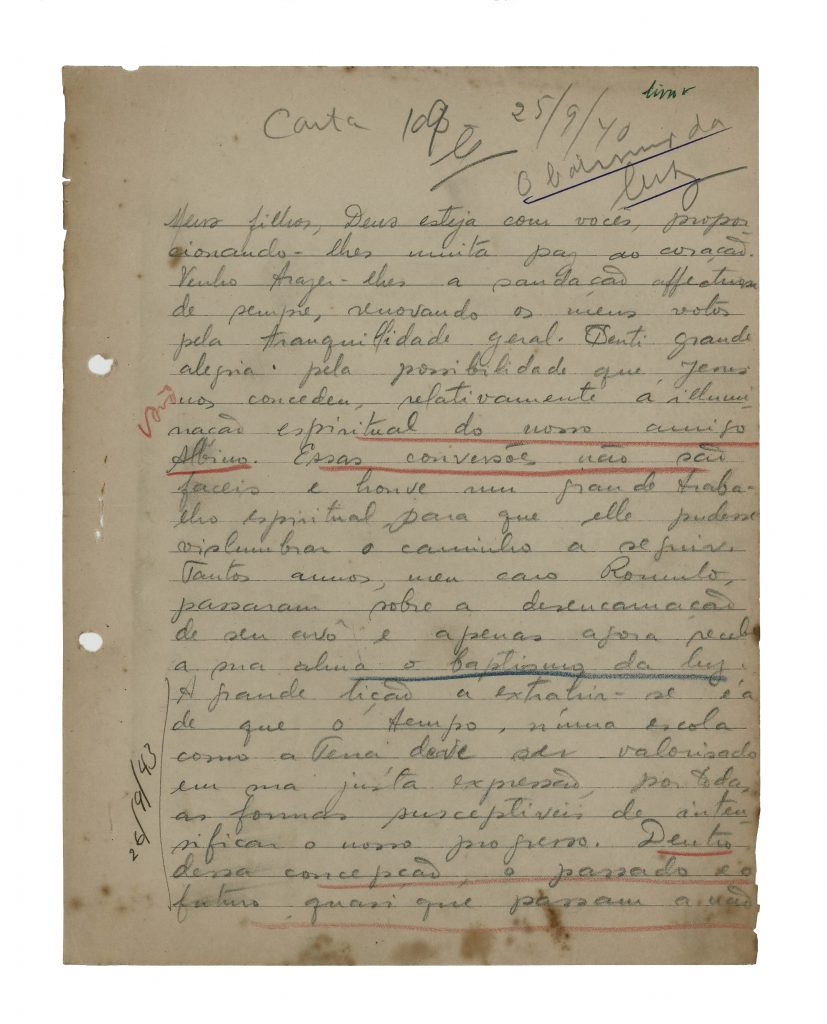 livro
Carta 109
25/9/40
O baptismo da
luz
Meus filhos, Deus esteja com voces, propor-
cionando-lhes muita paz ao coração.
Venho trazer-lhes a saudação affectuosa
de sempre, renovando os meus votos
pela tranquillidade geral. Senti grande
alegria pela possibilidade que Jesus
nos concedeu, relativamente á illumi-
nação espiritual do nosso amigo
Albino. Essas conversões não são
faceis e houve um grande traba-
lho espiritual para que elle pudesse
vislumbrar o caminho a seguir.
Tantos annos, meu caro Romulo,
passaram sobre a desencarnação
de seu avô e apenas agora recebe
a sua alma o baptismo da luz.
A grande lição a extrahir-se é a
de que o tempo, numa escola
como a Terra deve ser valorisado
em sua justa expressão, por todas
as formas susceptiveis de inten-
sificar o nosso progresso. Dentro
dessa concepção, o passado e o
futuro quasi que passam a não
26/9/43